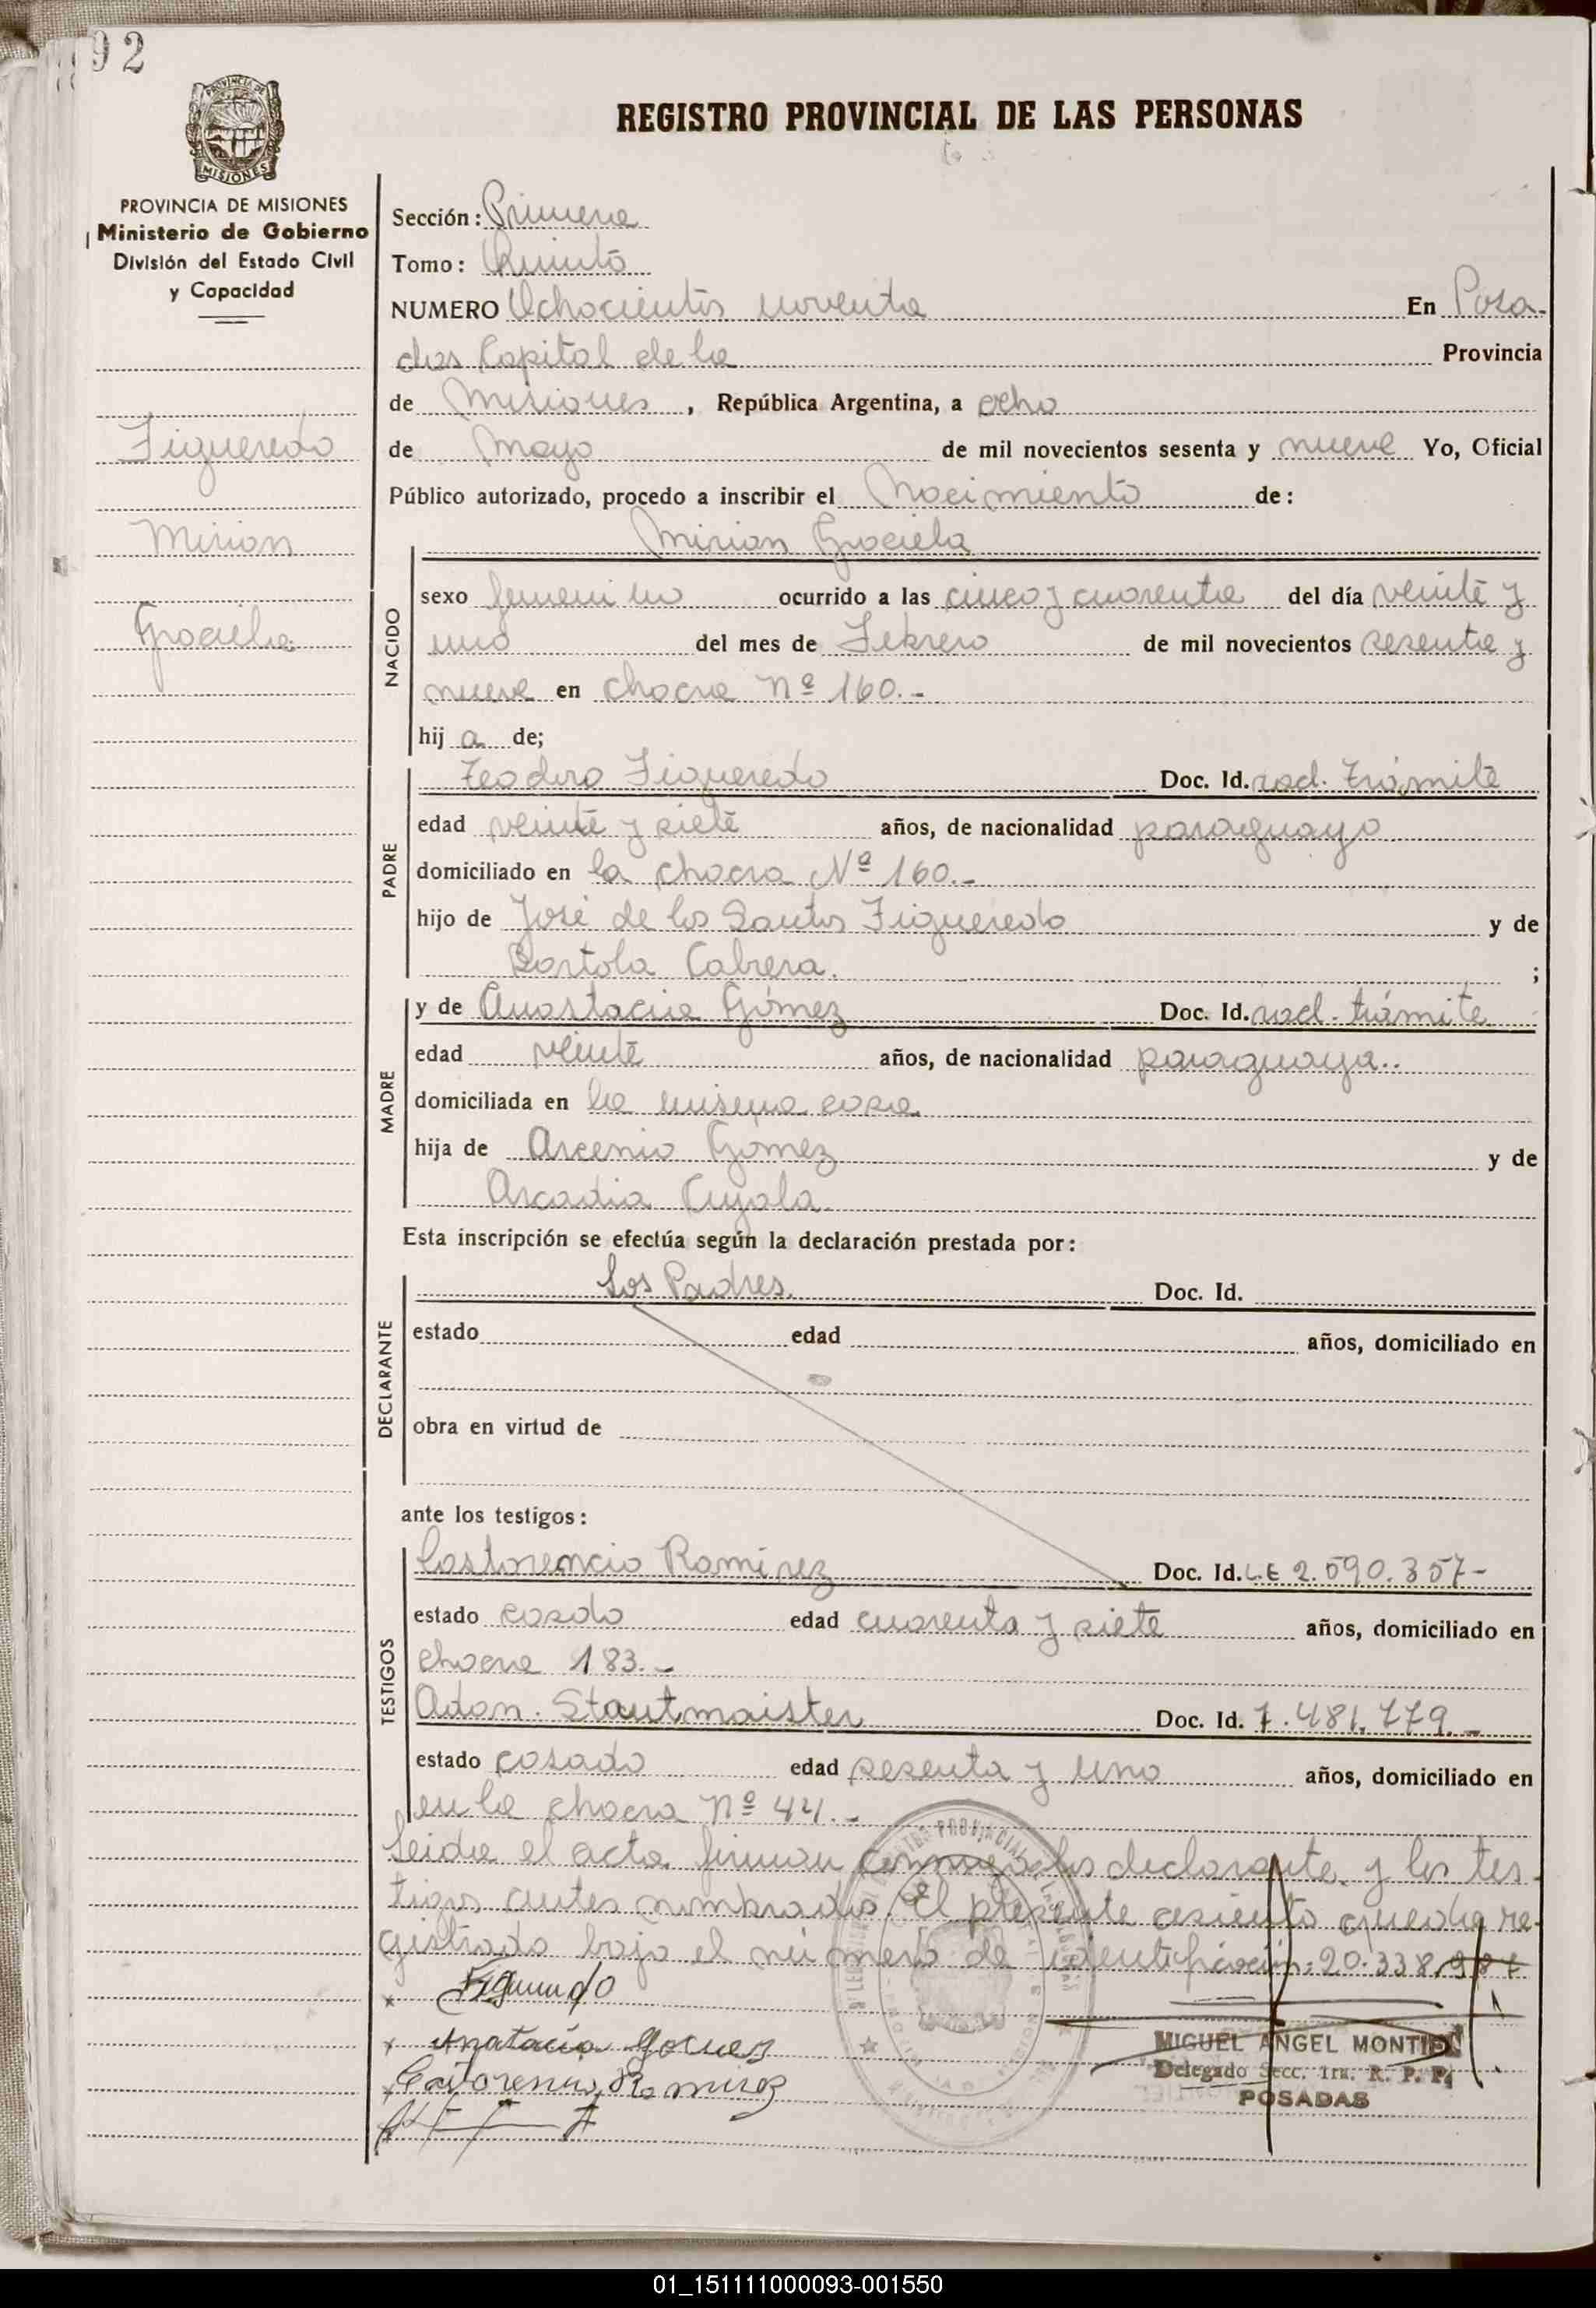 92
REGISTRO PROVINCIAL DE LAS PERSONAS
PROVINCIA DE MISIONES
MISIONES
PROVINCIA DE MISIONES
Ministerio de Gobierno
División del Estado Civil
y Capacidad
Figueredo
Mirian
Graciela
Sección: Primera
Tomo: Quinto
NUMERO Ochocientos noventa En Posa-
das Capital de la Provincia
de Misiones, República Argentina, a ocho
de Mayo de mil novecientos sesenta y nueve Yo, Oficial
Público autorizado, procedo a inscribir el Nacimiento de:
Mirian Graciela
NACIDO
sexo femenino ocurrido a las cinco y cuarenta del día veinte y
uno del mes de Febrero de mil novecientos sesenta y
nueve en chacra Nº 160.-
hij a de;
PADRE
Teodoro Figueredo Doc. Id. rad. trámite
edad veinte y siete años, de nacionalidad paraguayo
domiciliado en la chacra Nº 160.-
hijo de José de los Santos Figueredo y de
Bartola Cabrera. ;
MADRE
y de Anastacia Gómez Doc. Id. rad. trámite
edad veinte años, de nacionalidad paraguaya..
domiciliada en la misma casa
hija de Arcenio Gómez y de
Arcadia Cuyala.
Esta inscripción se efectúa según la declaración prestada por:
DECLARANTE
Los Padres. Doc. Id.
estado edad años, domiciliado en
obra en virtud de
ante los testigos:
TESTIGOS
Castorencio Ramirez Doc. Id. L.E 2.590.357-
estado casdo edad cuarenta y siete años, domiciliado en
chacra 183.-
Adan. Stautmaister Doc. Id. 7.481.779.-
estado casado edad sesenta y uno años, domiciliado en
en la chacra Nº 44.-
Leida el acta firman conmigo los declarante y los tes-
tigos antes nombrados. El presente asiento queda re-
gistrado bajo el número de identificación: 20.338.987
Figueredo
Anatacia Gomez
Ramirez
MIGUEL ANGEL MONTIEL
Delegado Secc. 1ra. R. P. P.
POSADAS
01_151111000093-001550